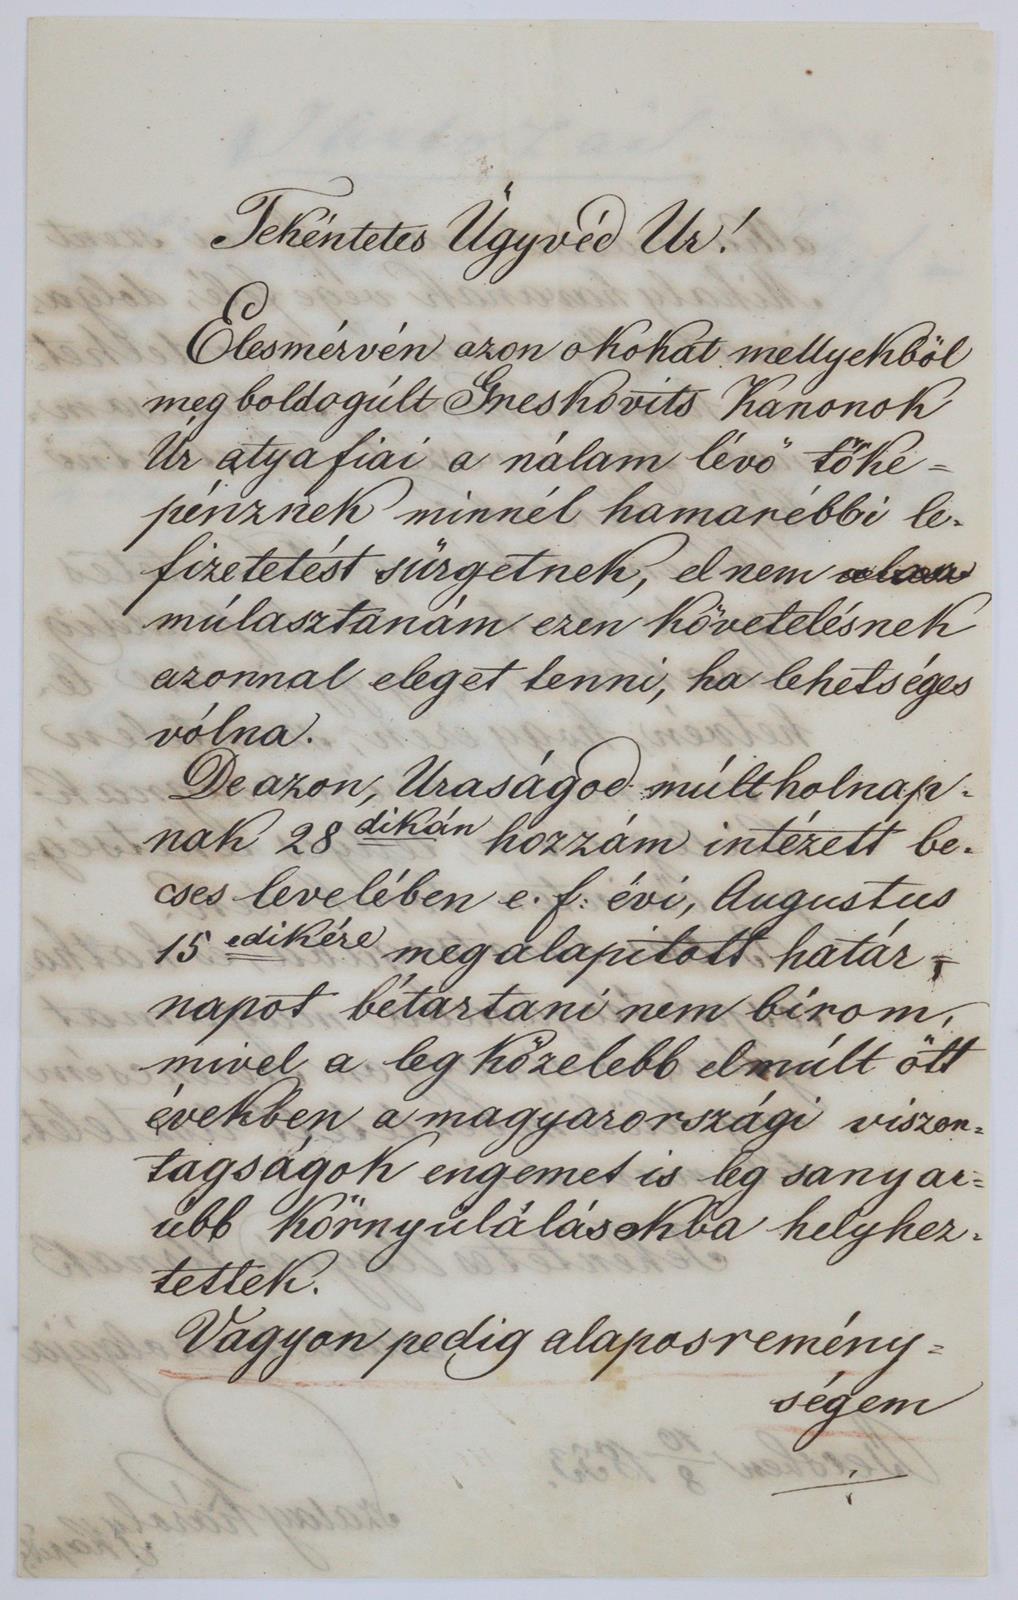 Tekéntetes Ügyvéd Ur!
Elesmérvén azon okokat mellyekből
megboldogúlt Greskovits Kanonok
Úr atyafiai a nálam lévő tőke=
pénznek minnél hamarébbi le-
fizetetést sürgetnek, el nem
múlasztanám ezen követelésnek
azonnal eleget tenni, ha lehetséges
vólna.
De azon, Uraságod múlt holnap-
nak 28 dikán hozzám intézett be-
cses levelében e. f: évi, Augustus
15 edikére megalapitott határ=
napot bétartani nem birom,
mivel a leg közelebb elmúlt ött
években a magyarországi viszon=
tagságok engemet is leg sanyar=
úbb környülálásokba helyhez-
tettek.
Vagyon pedig alapos remény=
ségem